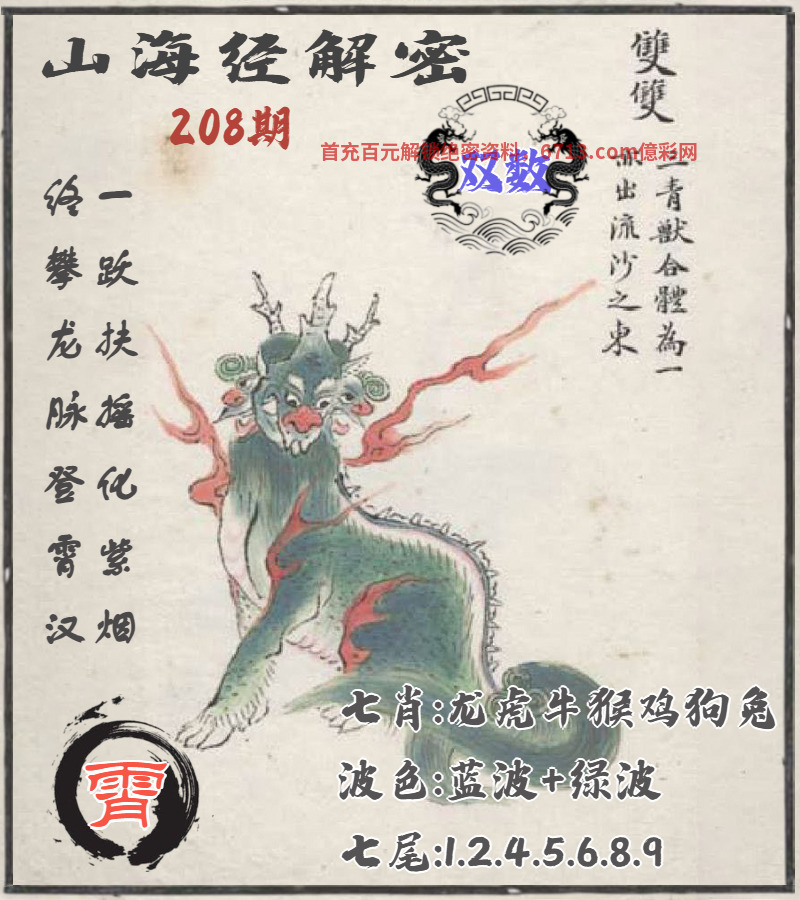 山海经解密
208期
雙雙
三青獸合體為一
出流沙之東
首充百元解锁绝密资料，6713.com億彩网
双数
一跃扶摇化紫烟
终攀龙脉登霄汉
七肖:龙虎牛猴鸡狗兔
波色:蓝波+绿波
七尾:1.2.4.5.6.8.9
霄